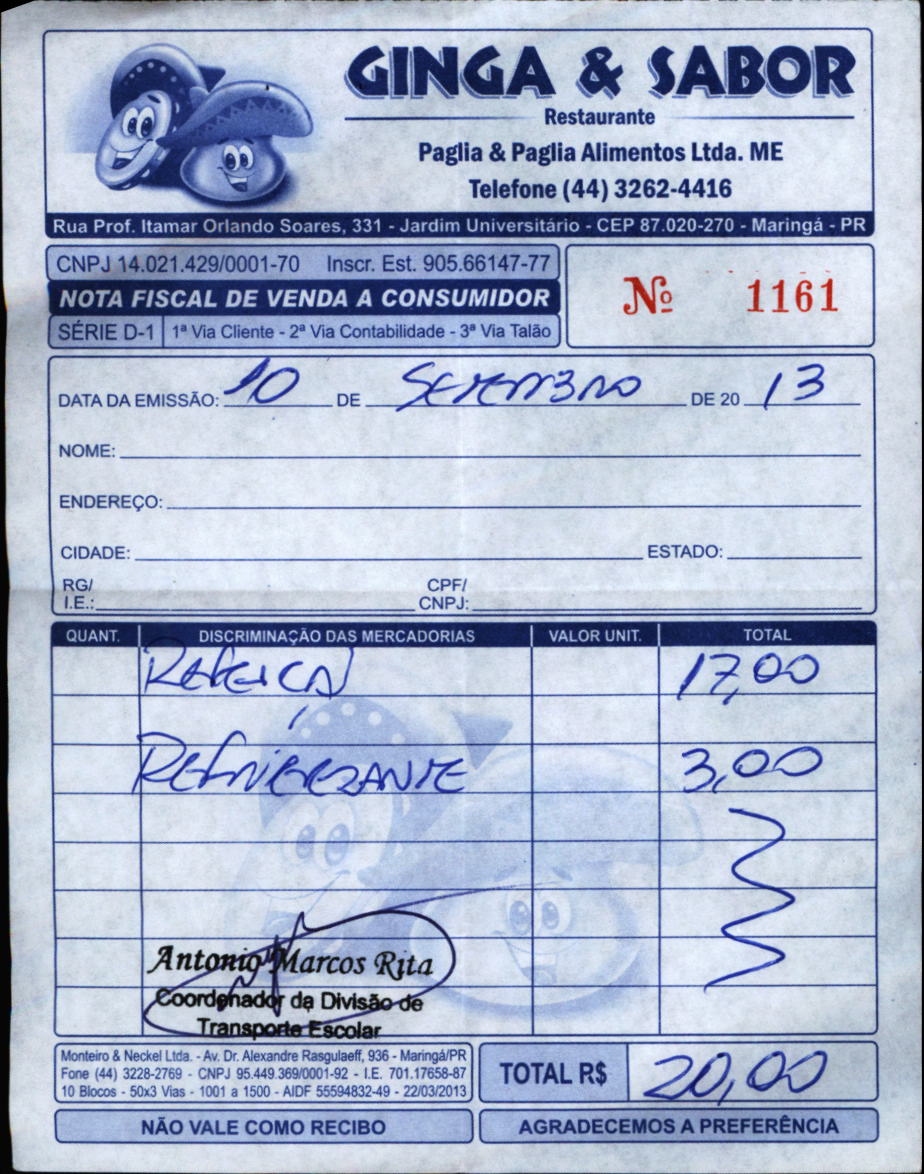 GINGA & SABOR
Restaurante
Paglia & Paglia Alimentos Ltda. ME
Telefone (44) 3262-4416
Rua Prof. Itamar Orlando Soares, 331 - Jardim Universitário - CEP 87.020-270 - Maringá - PR
CNPJ 14.021.429/0001-70 Inscr. Est. 905.66147-77
NOTA FISCAL DE VENDA A CONSUMIDOR
SÉRIE D-1 1ª Via Cliente - 2ª Via Contabilidade - 3ª Via Talão
Nº 1161
DATA DA EMISSÃO: 10 DE SETEMBRO DE 20 13
NOME:
ENDEREÇO:
CIDADE: ESTADO:
RG/ CPF/
I.E.: CNPJ:
QUANT. DISCRIMINAÇÃO DAS MERCADORIAS VALOR UNIT. TOTAL
17,00
REFRIGERANTE 3,00
Antonio Marcos Rita
Coordenador da Divisão de
Transporte Escolar
Monteiro & Neckel Ltda. - Av. Dr. Alexandre Rasgulaeff, 936 - Maringá/PR
Fone (44) 3228-2769 - CNPJ 95.449.369/0001-92 - I.E. 701.17658-87
10 Blocos - 50x3 Vias - 1001 a 1500 - AIDF 55594832-49 - 22/03/2013
TOTAL R$ 20,00
NÃO VALE COMO RECIBO
AGRADECEMOS A PREFERÊNCIA